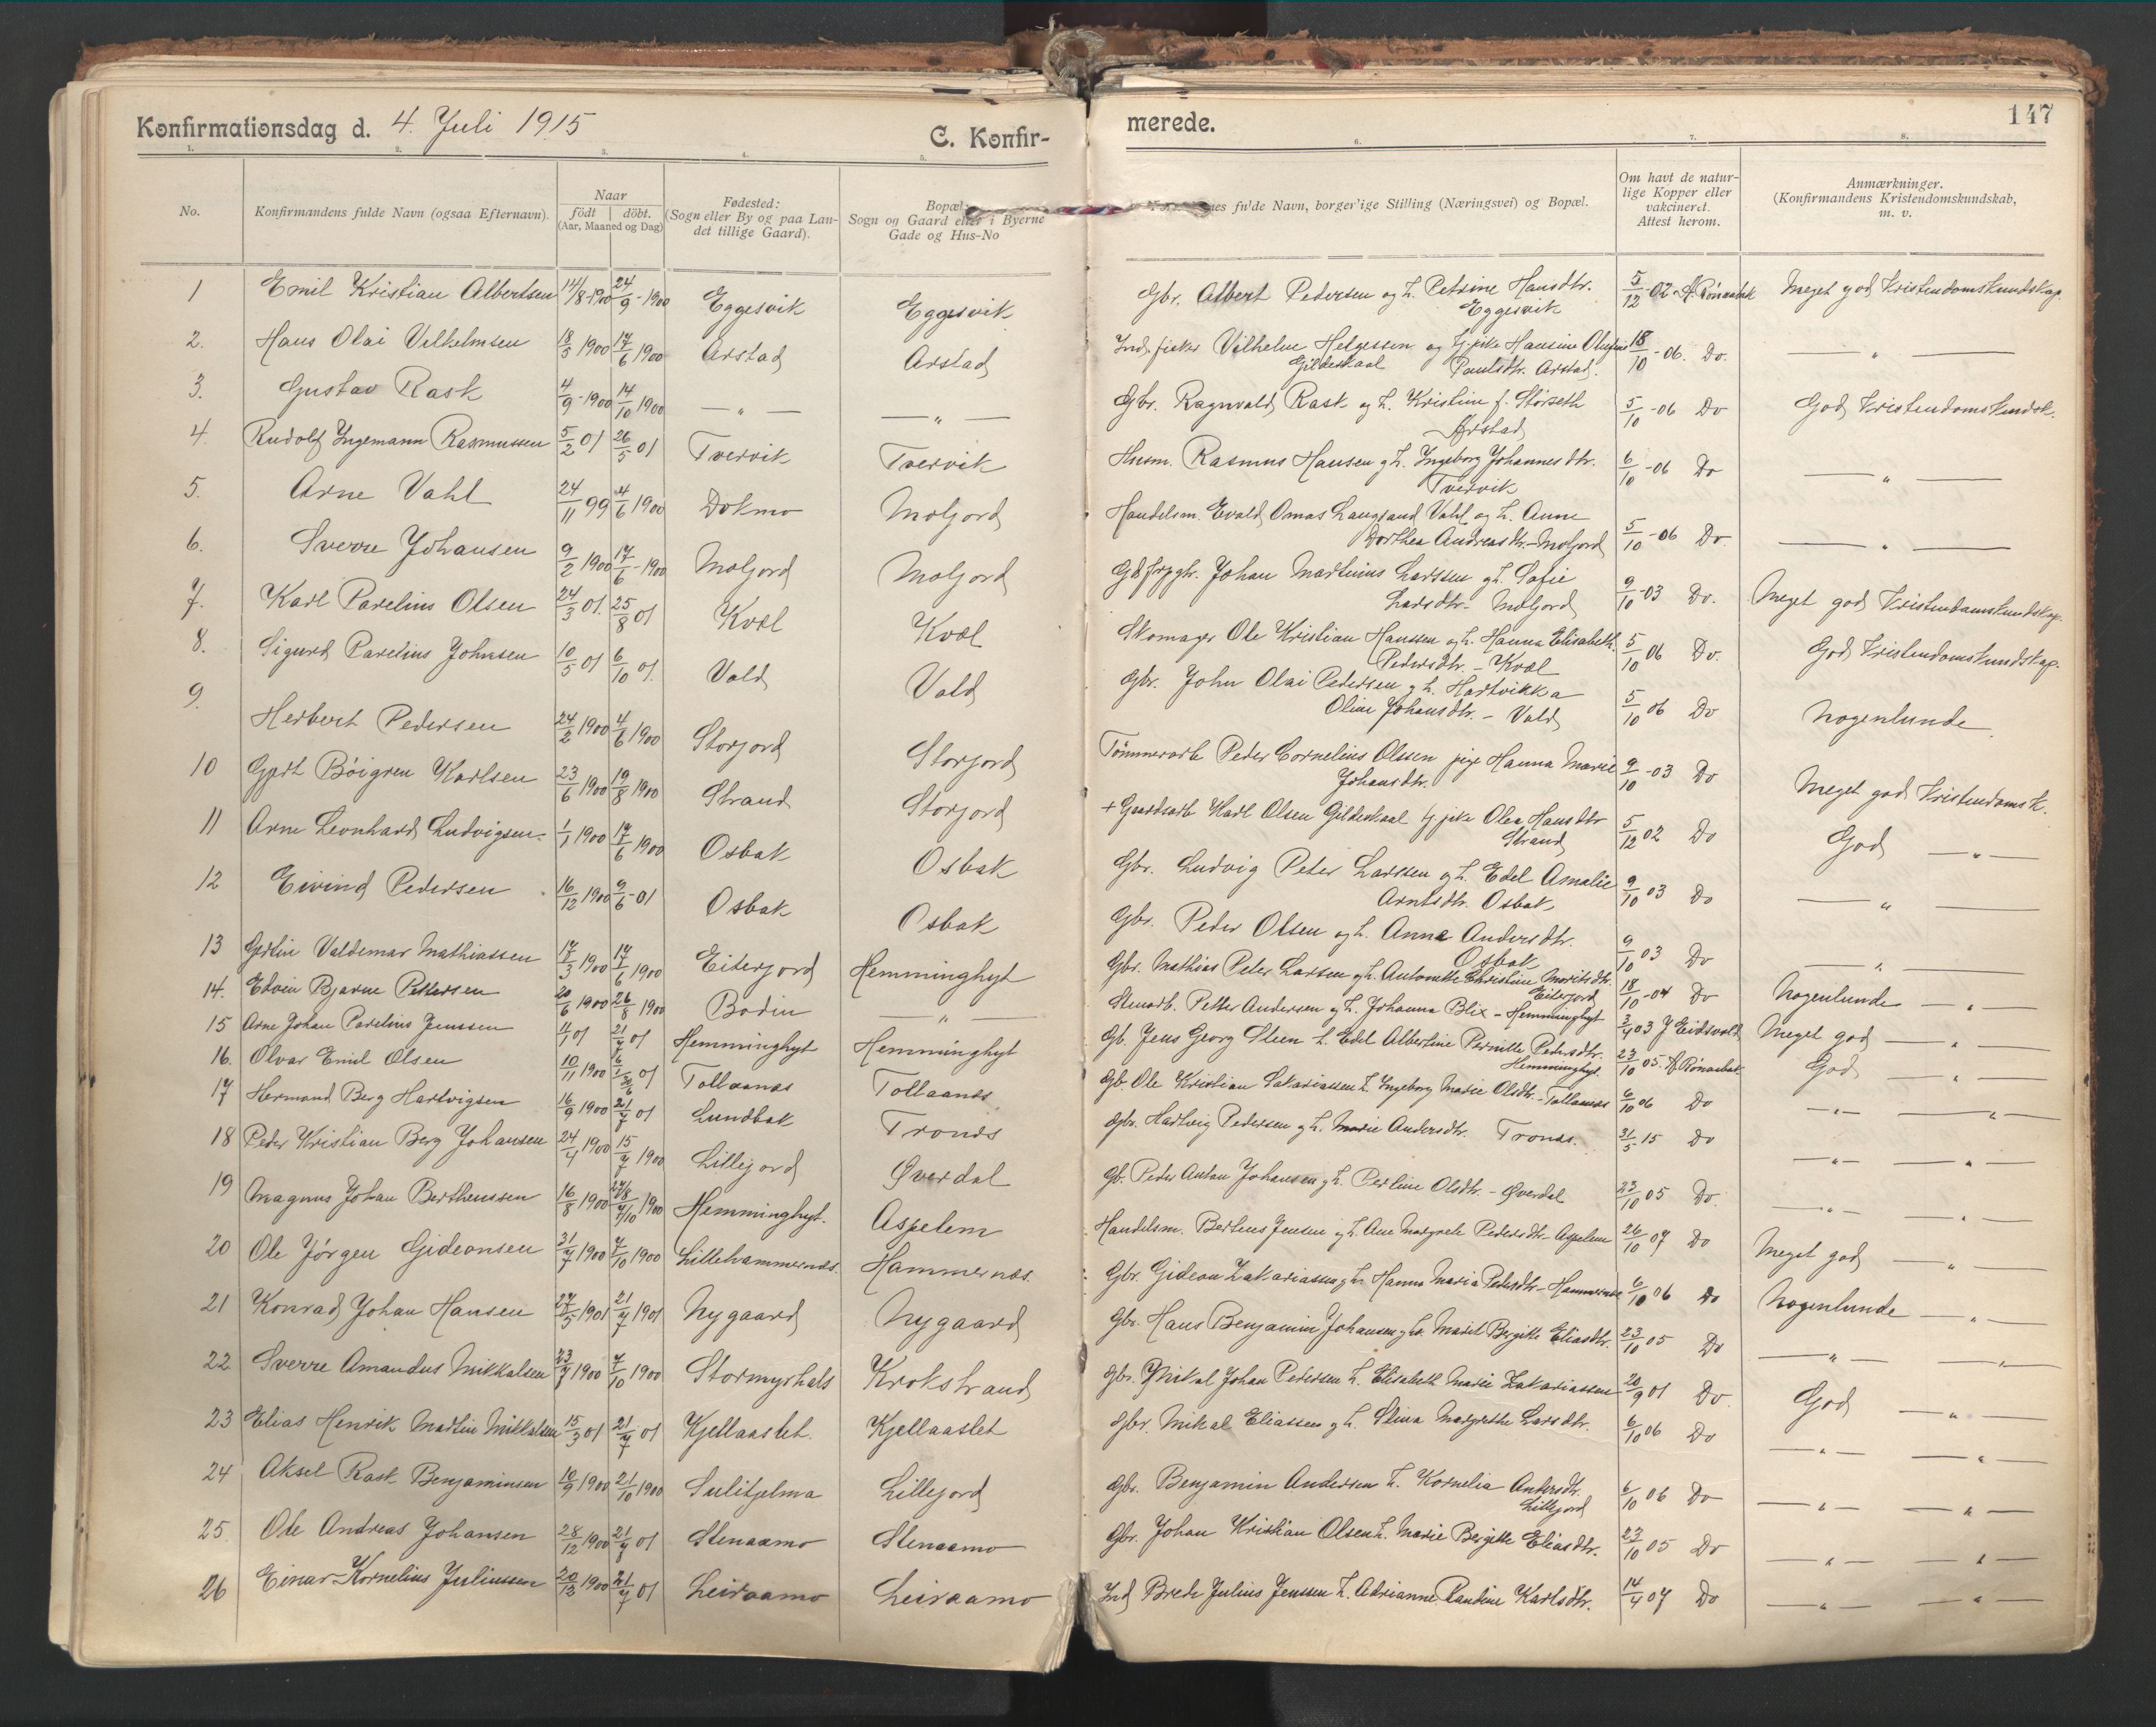 Konfirmationsdag d. 4. Juli 1915
C. Konfir-
merede.
147
1. 2. 3. 4. 5. 6. 7. 8.
No.
Konfirmandens fulde Navn (ogsaa Efternavn).
Naar
födt döbt.
(Aar, Maaned og Dag)
Fødested:
(Sogn eller By og paa Lan-
det tillige Gaard).
Bopæl:
Sogn og Gaard eller i Byerne
Gade og Hus-No
fulde Navn, borgerlige Stilling (Næringsvei) og Bopæl.
Om havt de natur-
lige Kopper eller
vakcineret.
Attest herom.
Anmærkninger.
(Konfirmandens Kristendomskundskab,
m. v.
1 Emil Kristian Albertsen 14/8-1900 24/9-1900 Eggesvik Eggesvik Gbr. Albert Pedersen og h. Petrine Hansdtr. 5/12-02 A. Rönnebek Meget god Kristendomskundskap.
Eggesvik
2. Hans Olai Velhelmsen 18/5 1900 17/6 1900 Arstad Arstad Ind. fisker Vilhelm Helgessen og Hansine 18/10-06. Do. — " —
Gildeskaal Paulsdtr. Arstad.
3. Gustav Rask 4/9-1900 14/10 1900 — " — — " — Gbr. Ragnvald Rask og h. Kristine f. Storseth 5/10-06 Do God Kristendomskundsk.
Arstad
4. Rudolf Ingemann Rasmussen 5/2 01 26/5 01 Tvervik Tvervik Husm. Rasmus Hansen og h. Ingeborg Johannesdtr. 6/10-06 Do — " —
Tvervik
5. Arne Vahl 24/11 99 4/6 1900 Dokmo Moljord Handelsm. Evald Omas Langsand Vahl og h. Anne
Dorthea Andreasdtr. - Moljord 5/10-06 Do. — " —
6. Sverre Johansen 9/2 1900 17/6-1900 Moljord Moljord Johan Martinius Larssen og h. Sofie
Larsdtr. - Moljord 9/10-03 Do. Meget god Kristendomskundskap.
7. Karl Parelius Olsen 24/3 01. 25/8 01 Kvæl Kvæl Skomager Ole Kristian Hanssen og h. Hanna Elisabeth 5/10 06 Do. God Kristendomskundskap.
Pedersdtr. - Kvæl
8. Sigurd Parelius Johnsen 10/5 01 6/10 01. Vald Vald Gbr. John Olai Pedersen og h. Hartvikka
Oline Johansdtr. - Vald 5/10 06 Do Nogenlunde.
9. Herbert Pedersen 24/2 1900 4/6 1900 Storjord Storjord Tömmerarb Peder Cornelius Olssen pige Hanna Marie 9/10-03 Do Meget god Kristendomsk.
Johansdtr.
10 Böigren Karlsen 23/6 1900 19/8 1900 Strand Storjord + Gaardsarb Karl Olsen Gildeskaal Olea Hansdtr 5/12 02 Do God — " —
Strand
11 Arne Leonhard Ludvigsen 1/1 1900 17/6 1900 Osbak Osbak Gbr. Ludvig Peter Larssen og h. Edel Amalie 9/10 03 Do — " —
Arntsdtr. Osbak
12 Eivind Pedersen 16/12 1900 9/6-01 Osbak Osbak Gbr. Peder Olsen og h. Anna Andersdtr. 9/10 03 Do — " —
Osbak
13 Valdemar Mathiassen 17/3 1900 17/6 1900 Eiterjord Hemminghyt Gbr. Mathias Peter Larsen og h. Antonette Christine Moritsdtr. 18/10-04 Do Nogenlunde — " —
Eiterjord
14. Edvin Bjarne Pettersen 20/6 1900 26/8 1900 Bodin — " — Stenarb. Petter Andersen og h. Johanna Blix - Hemminghyt 3/4 03 J Eidsvold Meget god — " —
15 Arne Johan Parelius Jenssen 4/1 01 21/7 01 Hemminghyt Hemminghyt Gb. Jens Georg Steen h. Edel Albertine Pernille Pedersdtr. 23/10 05. A Rönnebek. God — " —
Hemminghyt.
16. Olvar Emil Olsen 10/11 1900 01 Tollaanes Tollaanes Gb Ole Kristian Sakariassen h. Ingeborg Marie Olsdtr. - Tollaanes 6/10 06 Do — " — — " —
17 Hermand Berg Hartvigsen 16/9 1900 21/7 01 Lundbak Trones Gbr. Hartvig Pedersen og h. Marie Andersdtr. Trones. 31/5 15 Do — " — — " —
18 Peder Kristian Berg Johansen 24/4 1900 15/7 1900 Lillejord Øverdal Gb. Peder Anton Johansen og h. Perline Olsdtr. - Øverdal 23/10 05 Do. — " — — " —
19 Magnus Johan Berthenssen 16/8 1900 27/8 7/10 1900 Hemminghyt. Aspelem Handelsm. Berthens Jensen og h. Ane Margrete Pedersdtr - Aspelem 26/10 07 Do Meget god — " —
20 Ole Jörgen Gideonsen 31/7 1900 7/10 1900 Lillehammernæs. Hammernæs. Gbr. Gideon Zakariassen og h. Hanna Maria Pedersdtr - Hammernæs 6/10 06 Do Nogenlunde — " —
21 Konrad Johan Hansen 27/5 1901 21/7 1901 Nygaard Nygaard Gbr. Hans Benjamin Johansen og h. Marit Bergitte Eliasdtr. 23/10 05 Do — " — — " —
22 Sverre Amandus Mikkalsen 23/7 1900 7/10 1900 Stormyrhals Krokstrand Gbr. Mikal Johan Pedersen h. Elisabeth Marie Zakariassen 20/9 01 Do. God — " —
23 Elias Henrik Martin Mikkalsen 15/3 01 21/7 01 Kjellaaslet. Kjellaaslet Gbr. Mikal Eliassen og h. Stina Margrethe Larsdtr. 6/10 06 Do — " — — " —
24 Aksel Rask Benjaminsen 10/9 1900 21/10 1900 Sulitjelma Lillejord Gbr. Benjamin Andersen h. Kornelia Andersdtr. 6/10 06 Do — " — — " —
Lillejord
25. Ole Andreas Johansen 28/12 1900 21/7 01 Stenaamo Stenaamo Gbr. Johan Kristian Olsen h. Marie Bergitte Eliasdtr. 23/10 05 Do — " — — " —
26 Einar Kornelius Juliussen 20/12 1900 21/7 01 Leiraamo Leiraamo Ind Brede Julius Jenssen h. Adrianne Randine Karlsdtr. 14/4 07 Do — " — — " —